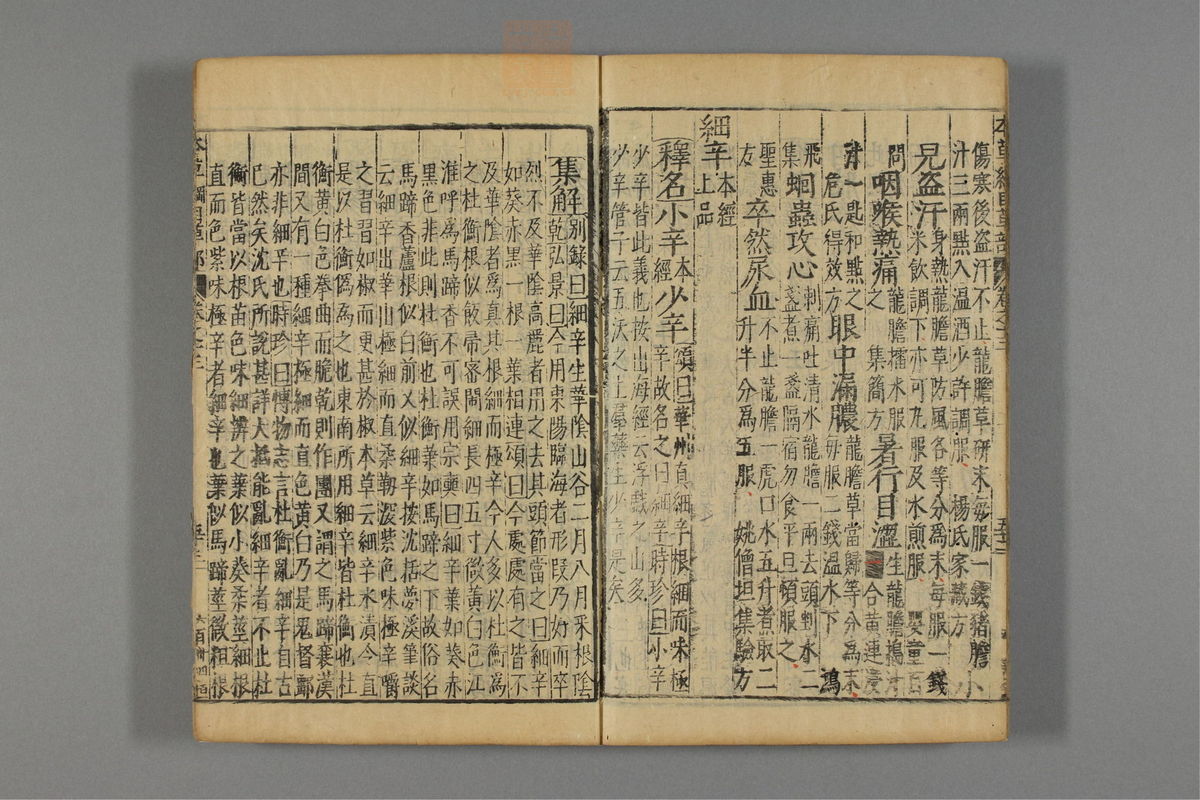 傷寒後盗汗不止龍膽草研末每服一錢猪膽
汁三兩點入温酒少許調服 楊氏家藏方 小
兒盗汗身熱龍膽草防風各等分爲末每服一錢
米飲調下亦可丸服及水煎服 嬰童百
問 咽喉熱痛龍膽擂水服之 集簡方 暑行目澀生龍膽搗汁
一合黄連浸
汁一匙和點之
危氏得效方 眼中漏膿龍膽草當歸等分爲末
每服二錢温水下 鴻
飛集 蛔蟲攻心刺痛吐清水龍膽一兩去頭剉水二
盞煮一盞隔宿勿食平旦頓服之
聖惠方 卒然尿血不止龍膽一虎口水五升煮取二
升半分爲五服 姚僧坦集驗方
細辛本經上品
釋名小辛本經少辛頌曰華州真細辛根細而味極
辛故名之曰細辛時珍曰小辛
少辛皆此義也按山海經云浮戲之山多
少辛管子云五沃之土羣藥生少辛是矣
集解别錄曰細辛生華陰山谷二月八月采根陰
乾弘景曰今用東陽臨海者形段乃好而辛
烈不及華陰高麗者用之去其頭節當之曰細辛
如葵赤黑一根一葉相連頌曰今處處有之皆不
及華陰者爲真其根細而極辛今人多以杜衡爲
之杜衡根似飯帚密閙細長四五寸微黄白色江
淮呼爲馬蹄香不可誤用宗奭曰細辛葉如葵赤
黑色非此則杜衡也杜衡葉如馬蹄之下故俗名
馬蹄香蓋根似白前又似細辛按沈括夢溪筆談
云細辛出華山極細而直柔靭深紫色味極辛嚼
之習習如椒而更甚於椒本草云細辛水漬令直
是以杜衡僞爲之也東南所用細辛皆杜衡也杜
衡黄白色拳曲而脆乾則作團又謂之馬蹄襄漢
間又有一種細辛極細而直色黄白乃是鬼督郵
亦非細辛也時珍曰博物志言杜衡亂細辛自古
已然矣沈氏所說甚詳大抵能亂細辛者不止杜
衡皆當以根苗色味細辨之葉似小葵柔莖細根
直而色紫味極辛者細辛也葉似馬蹄莖微粗根